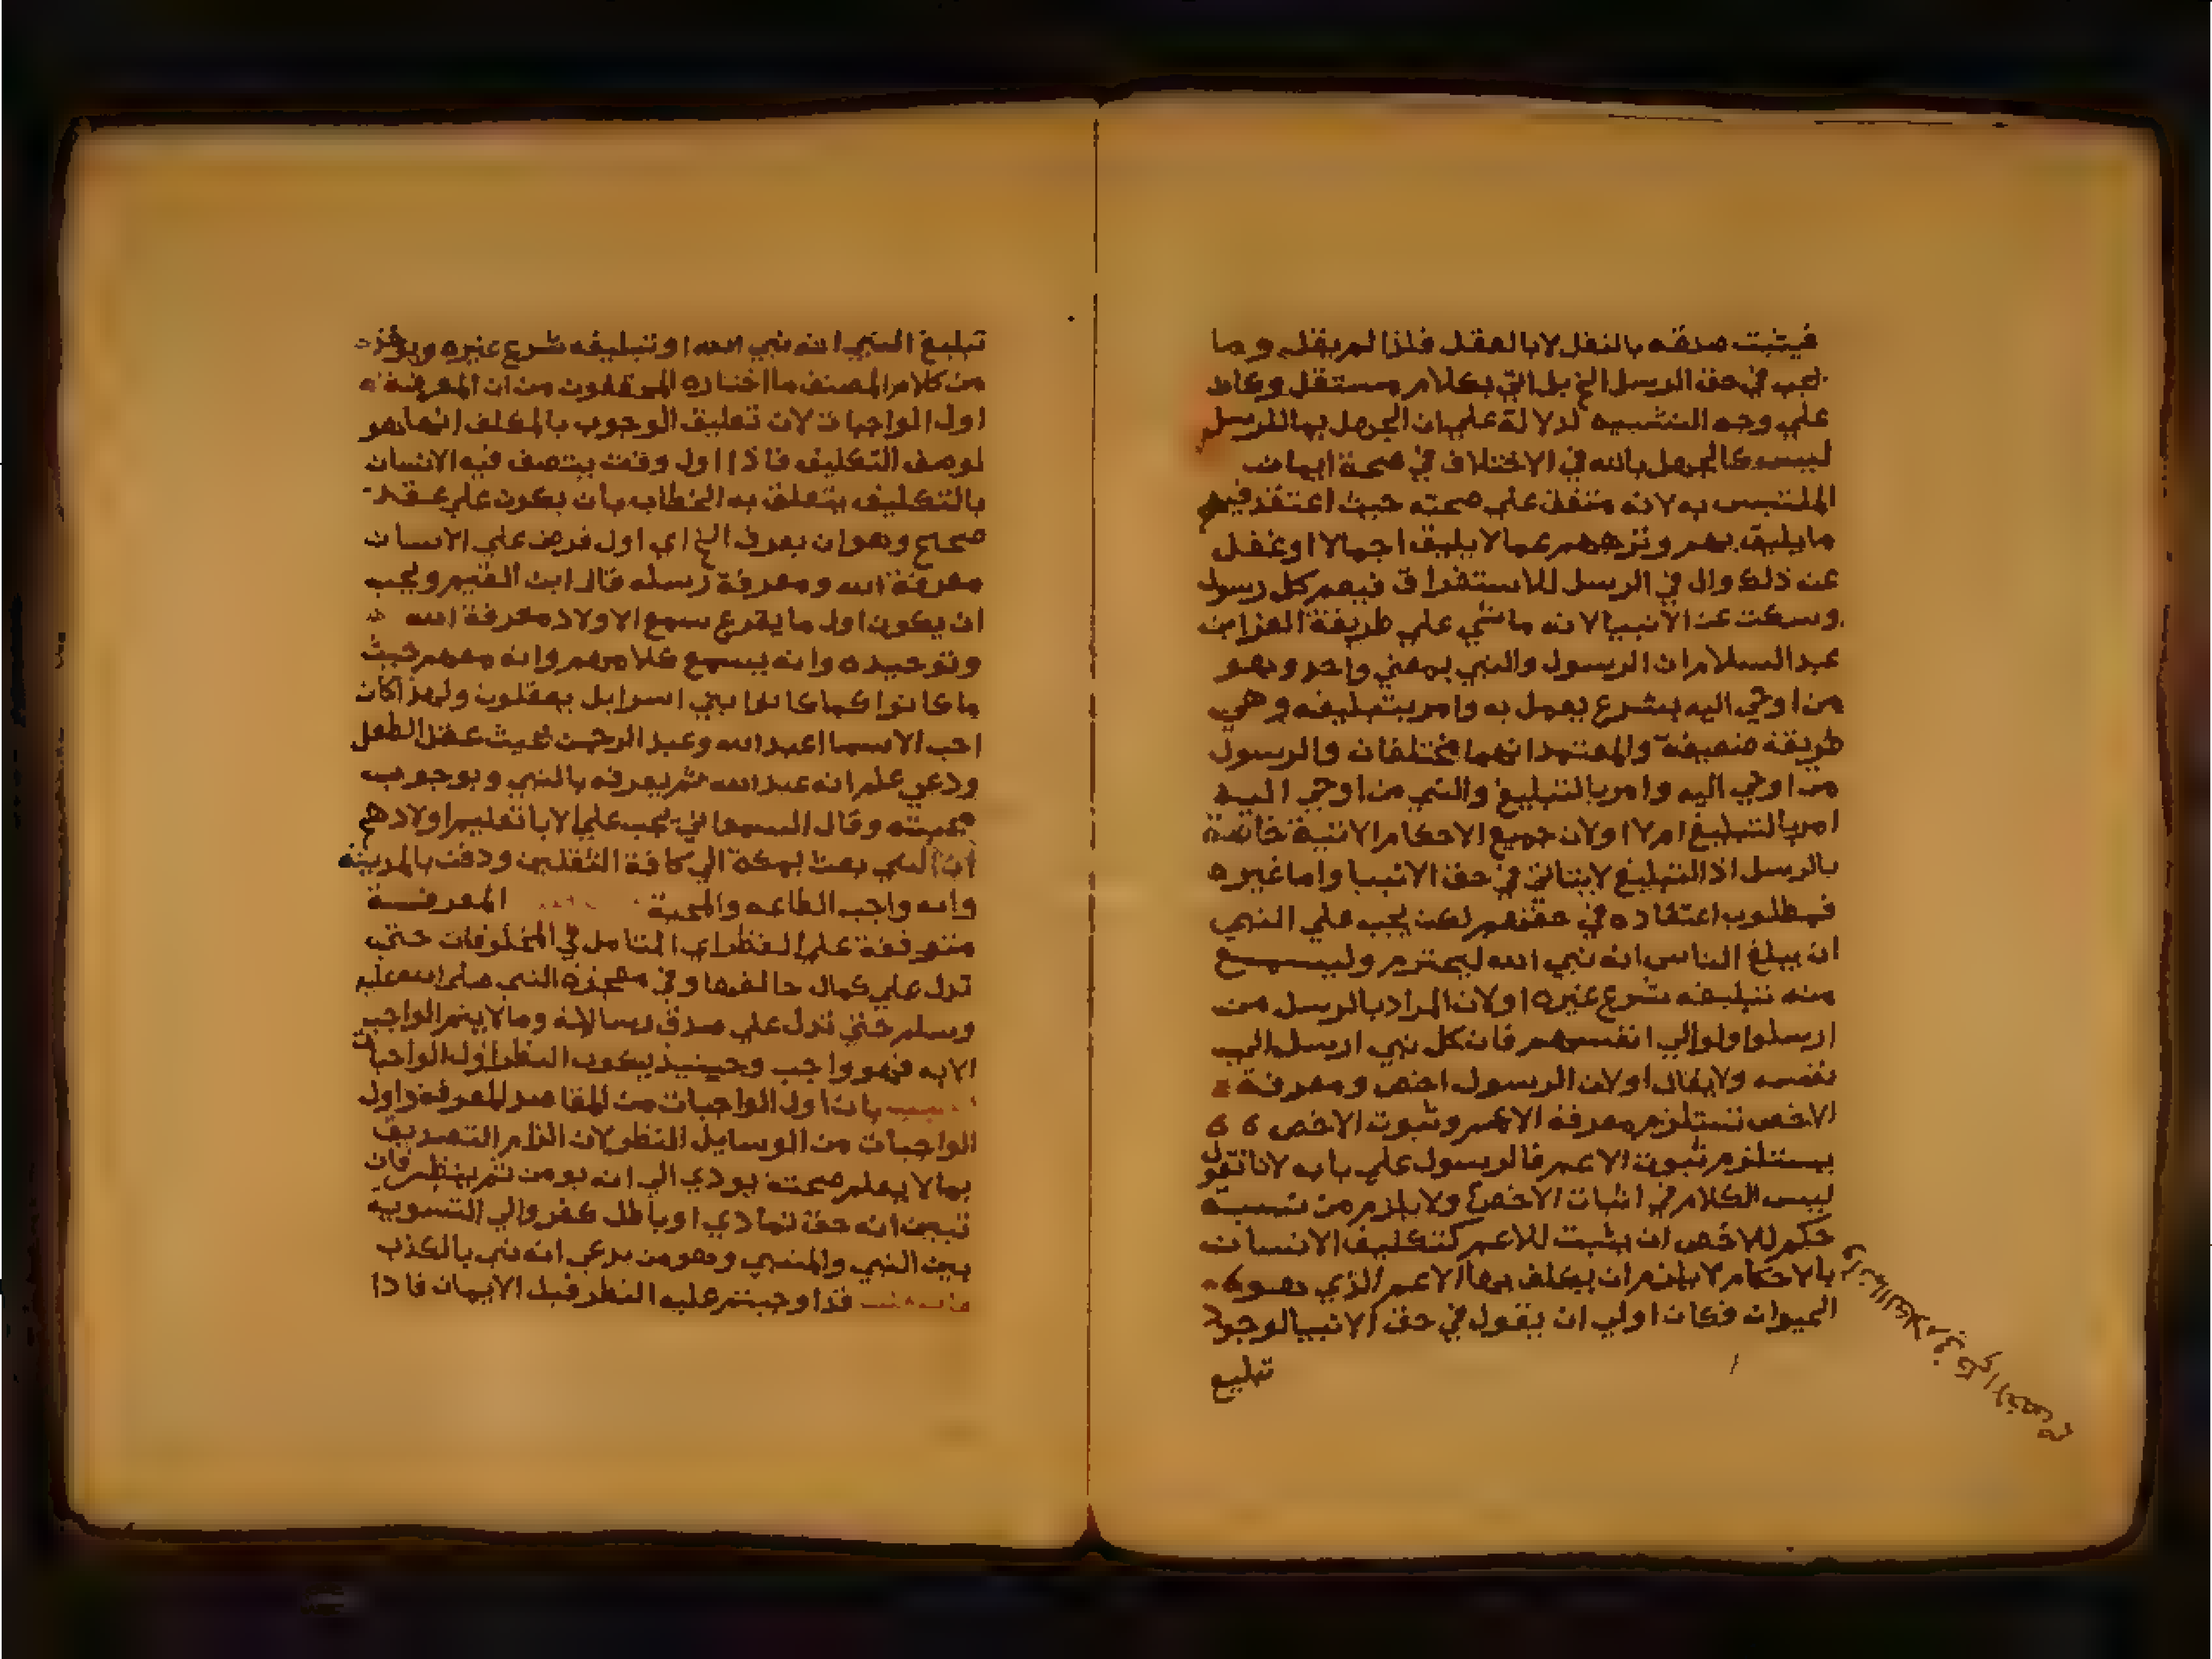 فيثبت صدقه بالنقل لا بالعقل فلذا لم يقل وما
يجب في حق الرسل الخ بل اتي بكلام مستقل وكاف
علي وجه التشبيه لدلالة علي ان الجهل بها للرسل
ليس كالجهل بالله في الاختلاف في صحة ايمان
الملتبس به لانه متفق علي صحته حيث اعتقد فيهم
ما يليق بهم ونزههم عما لا يليق اجمالا او غفل
عن ذلك وال في الرسل للاستغراق فيعم كل رسول
وسكت عن الانبيا لانه ماشي علي طريقة العز ابن
عبد السلام ان الرسول والنبي بمعني واحد وهو
من اوحي اليه بشرع يعمل به وامر بتبليغه وهي
طريقة ضعيفة والمعتمد انهما مختلفان والرسول
من اوحي اليه وامر بالتبليغ والنبي من اوحي اليه
امر بالتبليغ ام لا او لان جميع الاحكام الاتية خاصة
بالرسل اذ التبليغ لا يتاتي في حق الانبيا واما غيره
فمطلوب اعتقاده في حقهم لكن يجب علي النبي
ان يبلغ الناس انه نبي الله ليحترم وليسمع
منه تبليغه شرع غيره او لان المراد بالرسل من
ارسلوا ولو الي انفسهم فان كل نبي ارسل الي
نفسه ولا يقال اولان الرسول اخص ومعرفة
الاخص تستلزم معرفة الاعم وثبوت الاخص
يستلزم ثبوت الاعم فالرسول علي بابه لانا نقول
ليس الكلام في اثبات الاخص ولا يلزم من نسبة
حكم للاخص ان يثبت للاعم كتكليف الانسان
بالاحكام لا يلزم ان يكلف بها الاعم الذي هو
الحيوان فكان اولي ان يقول في حق الانبيا لوجود
تبليغ
تبليغ النبي انه نبي الله او تبليغه شرع غيره ويؤخذ
من كلام المصنف ما اختاره الموفقون من ان المعرفة
اول الواجبات لان تعليق الوجوب بالمكلف انما هو
لوصف التكليف فاذا اول وقت يتصف فيه الانسان
بالتكليف يتعلق به الخطاب بان يكون علي عقد
صحيح وهو ان يعرف الخ اي اول فرض علي الانسان
معرفة الله ومعرفة رسله قال ابن القيم ويجب
ان يكون اول ما يقرع سمع الاولاد معرفة الله
وتوحيده وانه يسمع كلامهم وانه معهم حيث
ما كانوا كما كانوا بني اسرايل يفعلون ولهذا كان
احب الاسما عبد الله وعبد الرحمن بحيث عقل الطفل
ودعي علم انه عبد الله ثم يعرفه بالنبي وبوجوب
محبته وقال السمعاني يجب علي الابا تعليم اولادهم
ان النبي بعث بمكة الي كافة الثقلين ودفن بالمدينة
وانه واجب الطاعه والمحبة المعرفة
متوقفة علي النظر اي التامل في المخلوقات حتي
تدل علي كمال خالقها وفي معجزة النبي صلي الله عليه
وسلم حتي تدل علي صدق رسالاته وما لا يتم الواجب
الا به فهو واجب وحينيذ يكون النظر اول الواجبات
بان اول الواجبات من المقاصد المعرفة واول
الواجبات من الوسايل النظر لان الزام التصديق
بما لا يعلم صحته يودي الي انه يومن ثم ينظر فان
تبين انه حق تمادي او باطل كفر والي التسوية
بين النبي والمتنبي وهو من يدعي انه نبي بالكذب
فذا وجبتم عليه النظر قبل الايمان فاذا